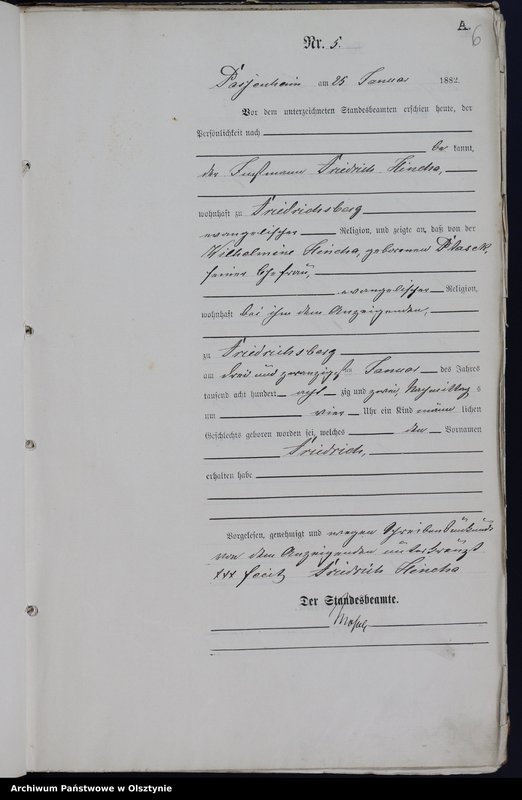 A.
6
Nr. 5.
Passenheim am 25 Januar 1882.
Vor dem unterzeichneten Standesbeamten erschien heute, der
Persönlichkeit nach
be kannt,
der Friedrich
wohnhaft zu Friedrichsberg
evangelischer Religion, und zeigte an, daß von der
Wilhelmine geborenen
seiner Ehefrau,
evangelischer Religion,
wohnhaft bei ihm dem Anzeigenden,
zu Friedrichsberg
am drei und zwanzigsten Januar des Jahres
tausend acht hundert acht zig und zwei, Nachmittag s
um vier Uhr ein Kind männ lichen
Geschlechts geboren worden sei, welches den Vornamen
Friedrich,
erhalten habe
Vorgelesen, genehmigt und wegen Schreibensunkunde
von dem Anzeigenden unterkreuzt
+++ fecit Friedrich
Der Standesbeamte.
Archiwum Państwowe w Olsztynie